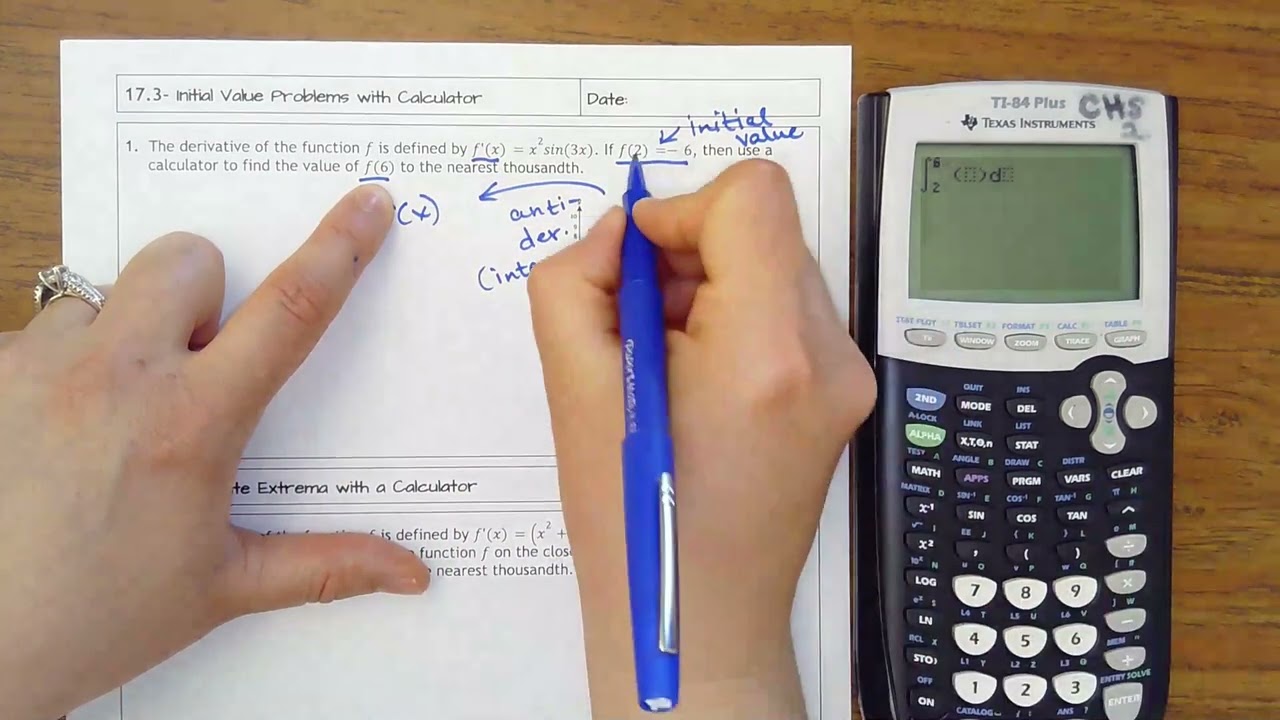 17.3- Initial Value Problems with Calculator
Date:
initial
value
1. The derivative of the function f is defined by f'(x) = x²sin(3x). If f(2) =− 6, then use a
calculator to find the value of f(6) to the nearest thousandth.
(x)
anti-
der.
te Extrema with a Calculator
is defined by f'(x) = (x²
function f on the
nearest thousandth.
TI-84 Plus CHS
2
TEXAS INSTRUMENTS
6
∫ ( )d
2
STAT PLOT TBLSET F2 FORMAT F3 CALC TABLE
WINDOW ZOOM TRACE GRAPH
QUIT INS
2ND MODE DEL
A-LOCK LINK LIST
ALPHA X,T,Θ,n STAT
TEST A ANGLE B DRAW C DISTR
MATH APPS PRGM VARS CLEAR
MATRIX D SIN⁻¹ E COS⁻¹ F TAN⁻¹ G π H
x⁻¹ SIN COS TAN ^
√ I EE J { K } L e M
x² , ( ) ÷
10ˣ N u O v P w Q
LOG 7 8 9 ×
eˣ S L4 T L5 U L6 V ] W
LN 4 5 6 −
RCL X L1 Y L2 Z L3 θ MEM "
STO› 1 2 3 +
OFF ENTRY SOLVE
ON ENTER
CATALOG i : ANS ?